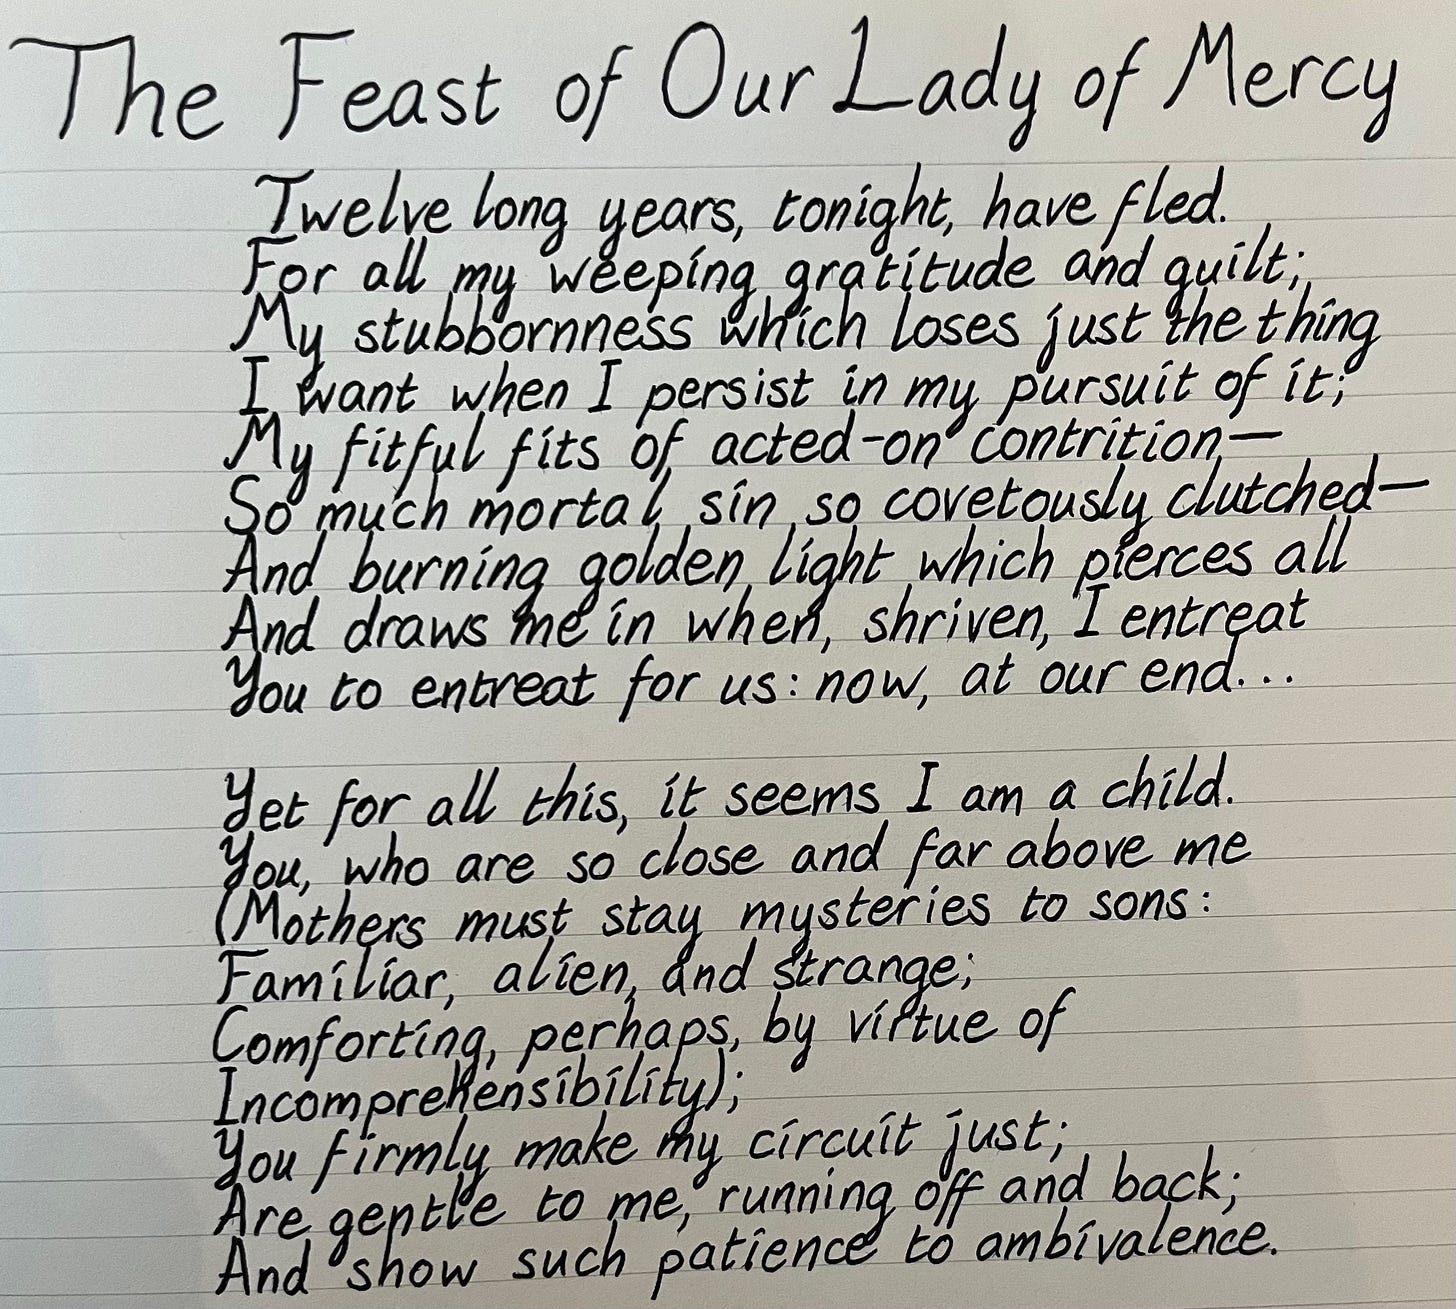 The Feast of Our Lady of Mercy
Twelve long years, tonight, have fled.
For all my weeping gratitude and guilt;
My stubbornness which loses just the thing
I want when I persist in my pursuit of it;
My fitful fits of acted-on contrition—
So much mortal sin so covetously clutched—
And burning golden light which pierces all
And draws me in when, shriven, I entreat
You to entreat for us: now, at our end...
Yet for all this, it seems I am a child.
You, who are so close and far above me
(Mothers must stay mysteries to sons:
Familiar, alien, and strange;
Comforting, perhaps, by virtue of
Incomprehensibility);
You firmly make my circuit just;
Are gentle to me, running off and back;
And show such patience to ambivalence.